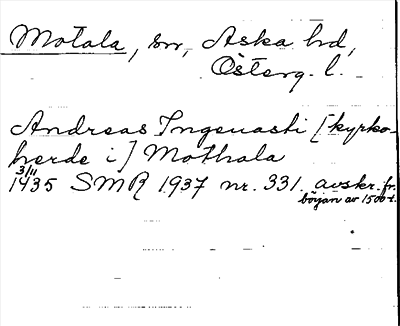 Motala, sn, Aska hd,
Österg. l.
Andreas Ingeuasti [kyrko-
herde i] Mothala
3/11
1435 SMR 1937 nr. 331. avskr. fr.
början av 1500-t.